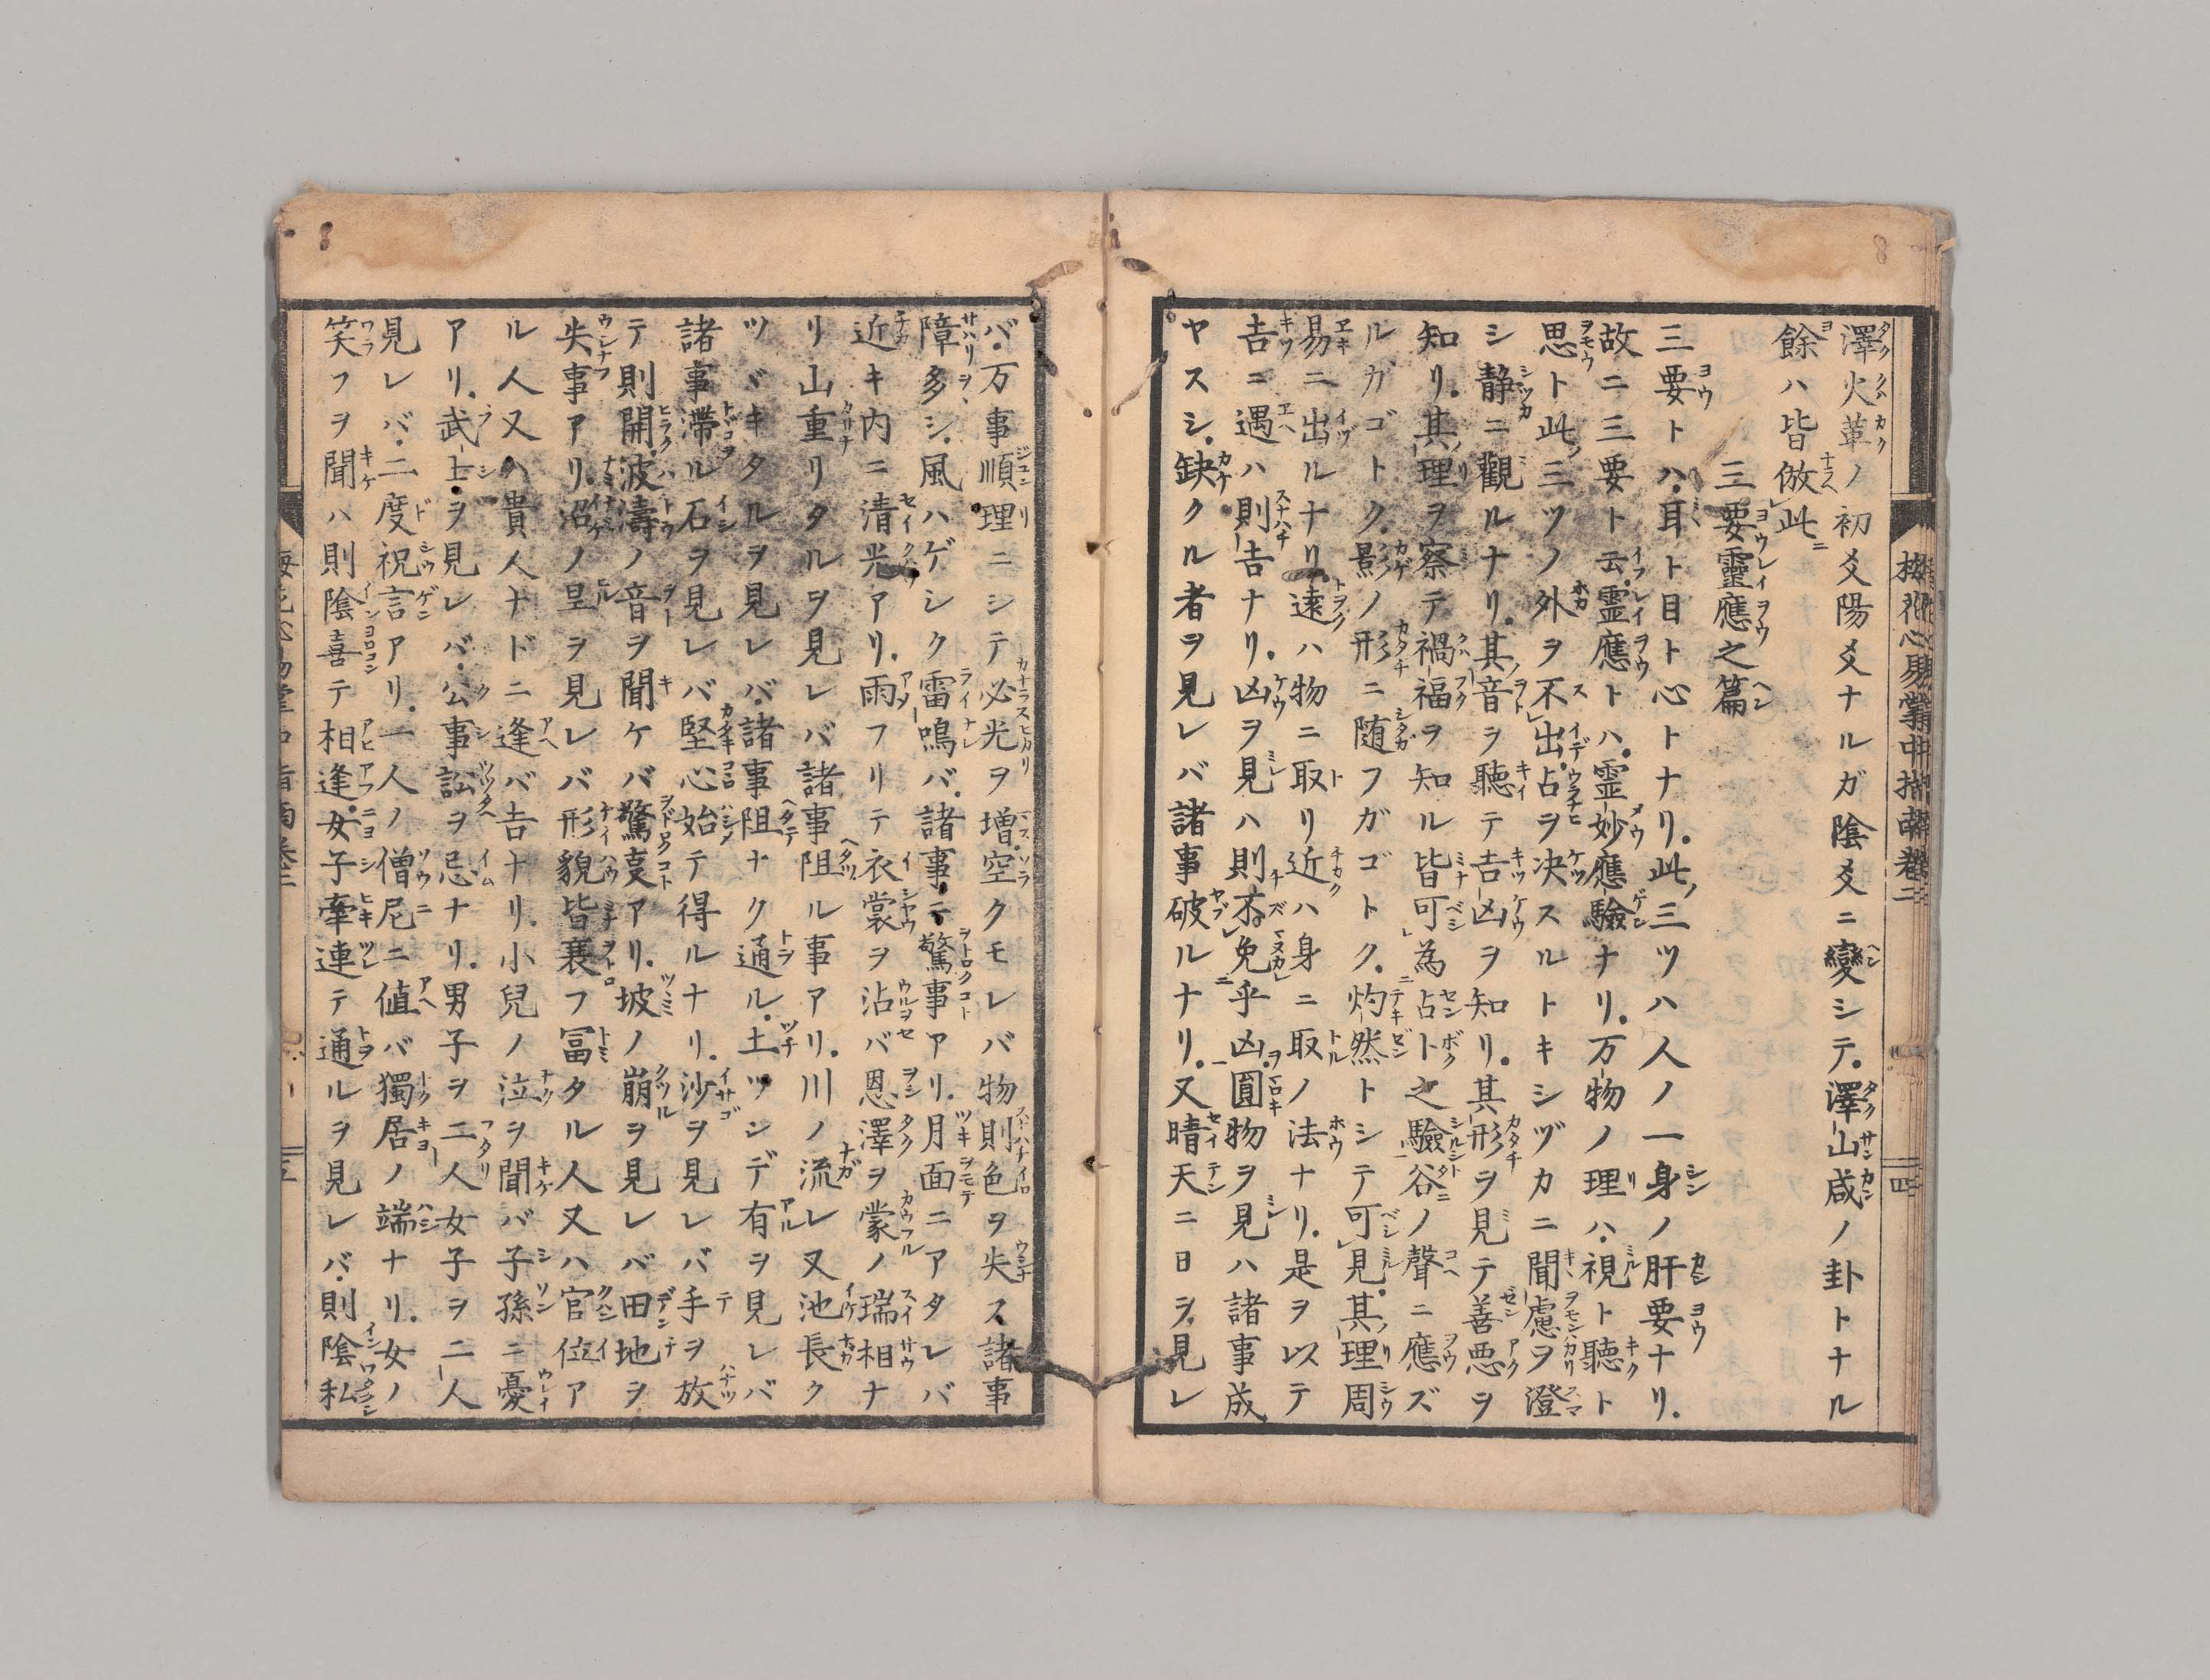 澤火革ノ初爻陽爻ナルガ陰爻ニ變シテ澤山咸ノ卦トナル
餘ハ皆倣此
三要靈應之篇
三要トハ耳ト目ト心トナリ此三ツハ人ノ一身ノ肝要ナリ
故ニ三要ト云霊應トハ霊妙應驗ナリ万物ノ理ハ視ト聴ト
思ト此三ツノ外ヲ不出占ヲ决スルトキシヅカニ聞慮ヲ澄
シ静ニ觀ルナリ其音ヲ聴テ吉凶ヲ知リ其形ヲ見テ善悪ヲ
知リ其理ヲ察テ禍福ヲ知ル皆可為占卜之驗谷ノ聲ニ應ズ
ルガゴトク影ノ形ニ随フガゴトク灼然トシテ可見其理周
易ニ出ルナリ遠ハ物ニ取リ近ハ身ニ取ノ法ナリ是ヲ以テ
吉ニ遇ハ則吉ナリ凶ヲ見ハ則不免乎凶圓物ヲ見ハ諸事成
ヤスシ缺クル者ヲ見レバ諸事破ルナリ又晴天ニ日ヲ見レ
バ万事順理ニシテ必光ヲ増空クモレバ物則色ヲ失ス諸事
障多シ風ハゲシク雷鳴バ諸事ニ驚事アリ月面ニアタレバ
近キ内ニ清光アリ雨フリテ衣裳ヲ沾バ恩澤ヲ蒙ノ瑞相ナ
リ山重リタルヲ見レバ諸事阻ル事アリ川ノ流レ又池長ク
ツヾキタルヲ見レバ諸事阻ナク通ル土ツンデ有ヲ見レバ
諸事滞ル石ヲ見レバ堅心始テ得ルナリ沙ヲ見レバ手ヲ放
テ則開波濤ノ音ヲ聞ケバ驚叓アリ坡ノ崩ヲ見レバ田地ヲ
失事アリ沼ノ旱ヲ見レバ形貌皆衰フ冨タル人又ハ官位ア
ル人又ハ貴人ナドニ逢バ吉ナリ小兒ノ泣ヲ聞バ子孫ニ憂
アリ武士ヲ見レバ公事訟ヲ忌ナリ男子ヲ二人女子ヲ二人
見レバ二度祝言アリ一人ノ僧尼ニ値バ獨居ノ端ナリ女ノ
笑フヲ聞ハ則陰喜テ相逢女子牽連テ通ルヲ見レバ則陰私